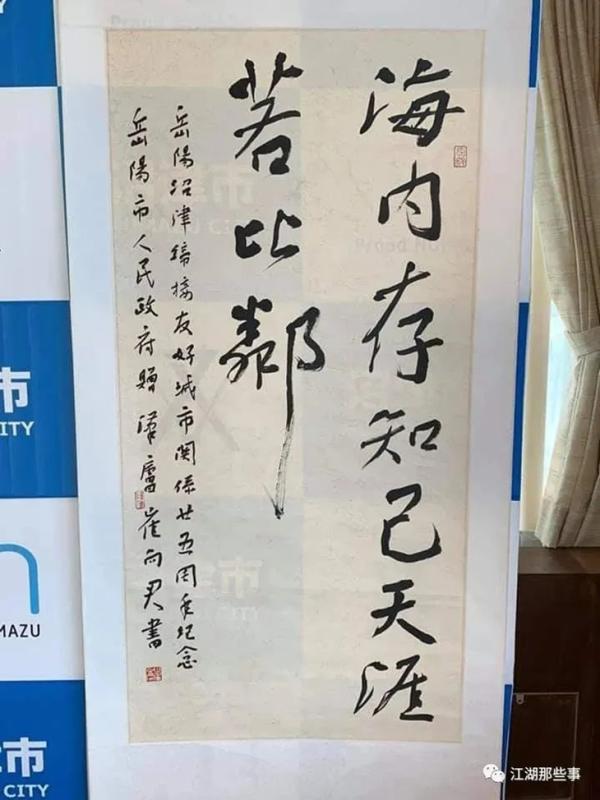 海内存知己天涯
若比鄰
岳陽沼津缔接友好城市関係廿五周年纪念
岳陽市人民政府贈 崔向君書
市
CITY
MAZU
市
CITY
江湖那些事